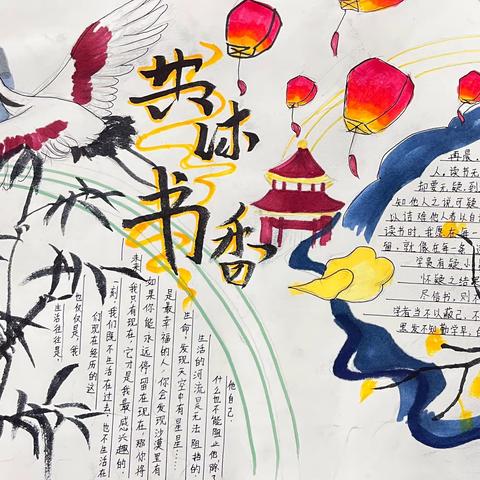 共沐书香
生活往往是,
也仅仅是,我
们现在经历的这
一刻,我们既不生活在过去,也不生活在
未来,我只有现在,它才是我最感兴趣的.
如果你能永远停留在现在,那你将
是最幸福的人,你会发现沙漠里有
生命,发现天空中有星星……
生活的河流是无法阻挡的,
什么也不能阻止他,除了
他自己.
再晨,
人,读书无
却要无疑,到
如他人之说可疑
以诘难他人者以自诘
读书时,我愿在每一
细,就像在每一条
学贵有疑,小
怀疑之结
尽信书,则
学者当不以蔽己,不
黑发不知勤学早,白